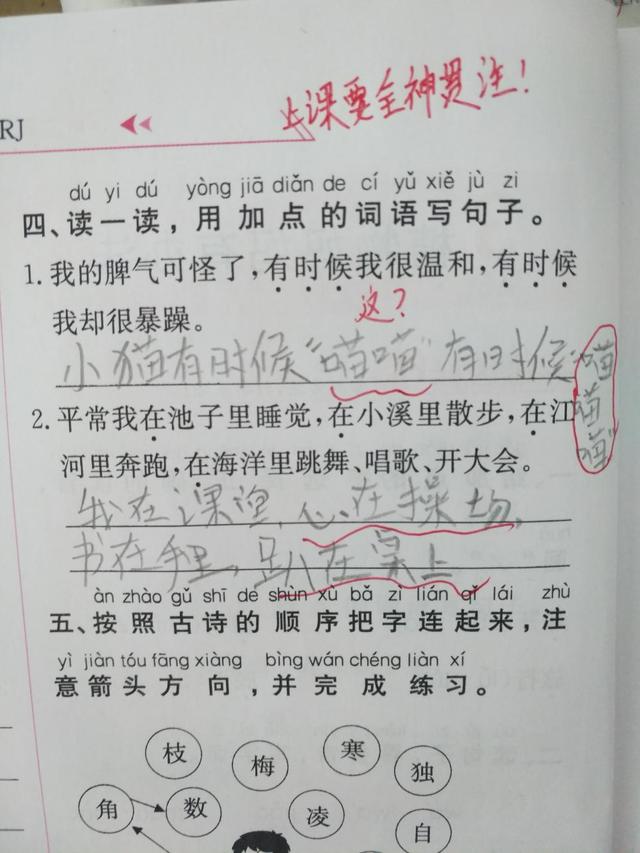 RJ
上课要全神贯注!
dú yi dú yòng jiā diǎn de cí yǔ xiě jù zi
四、读一读,用加点的词语写句子。
1.我的脾气可怪了,有时候我很温和,有时候
我却很暴躁。
这?
小猫有时候“喵喵”有时候“喵
喵
喵”
2.平常我在池子里睡觉,在小溪里散步,在江
河里奔跑,在海洋里跳舞、唱歌、开大会。
我在课堂,心在操场,
书在手里,趴在桌上
àn zhào gǔ shī de shùn xù bǎ zì lián qǐ lái zhù
五、按照古诗的顺序把字连起来,注
yì jiàn tóu fāng xiàng bìng wán chéng liàn xí
意箭头方向,并完成练习。
枝 梅 寒 独
角 数 凌 自